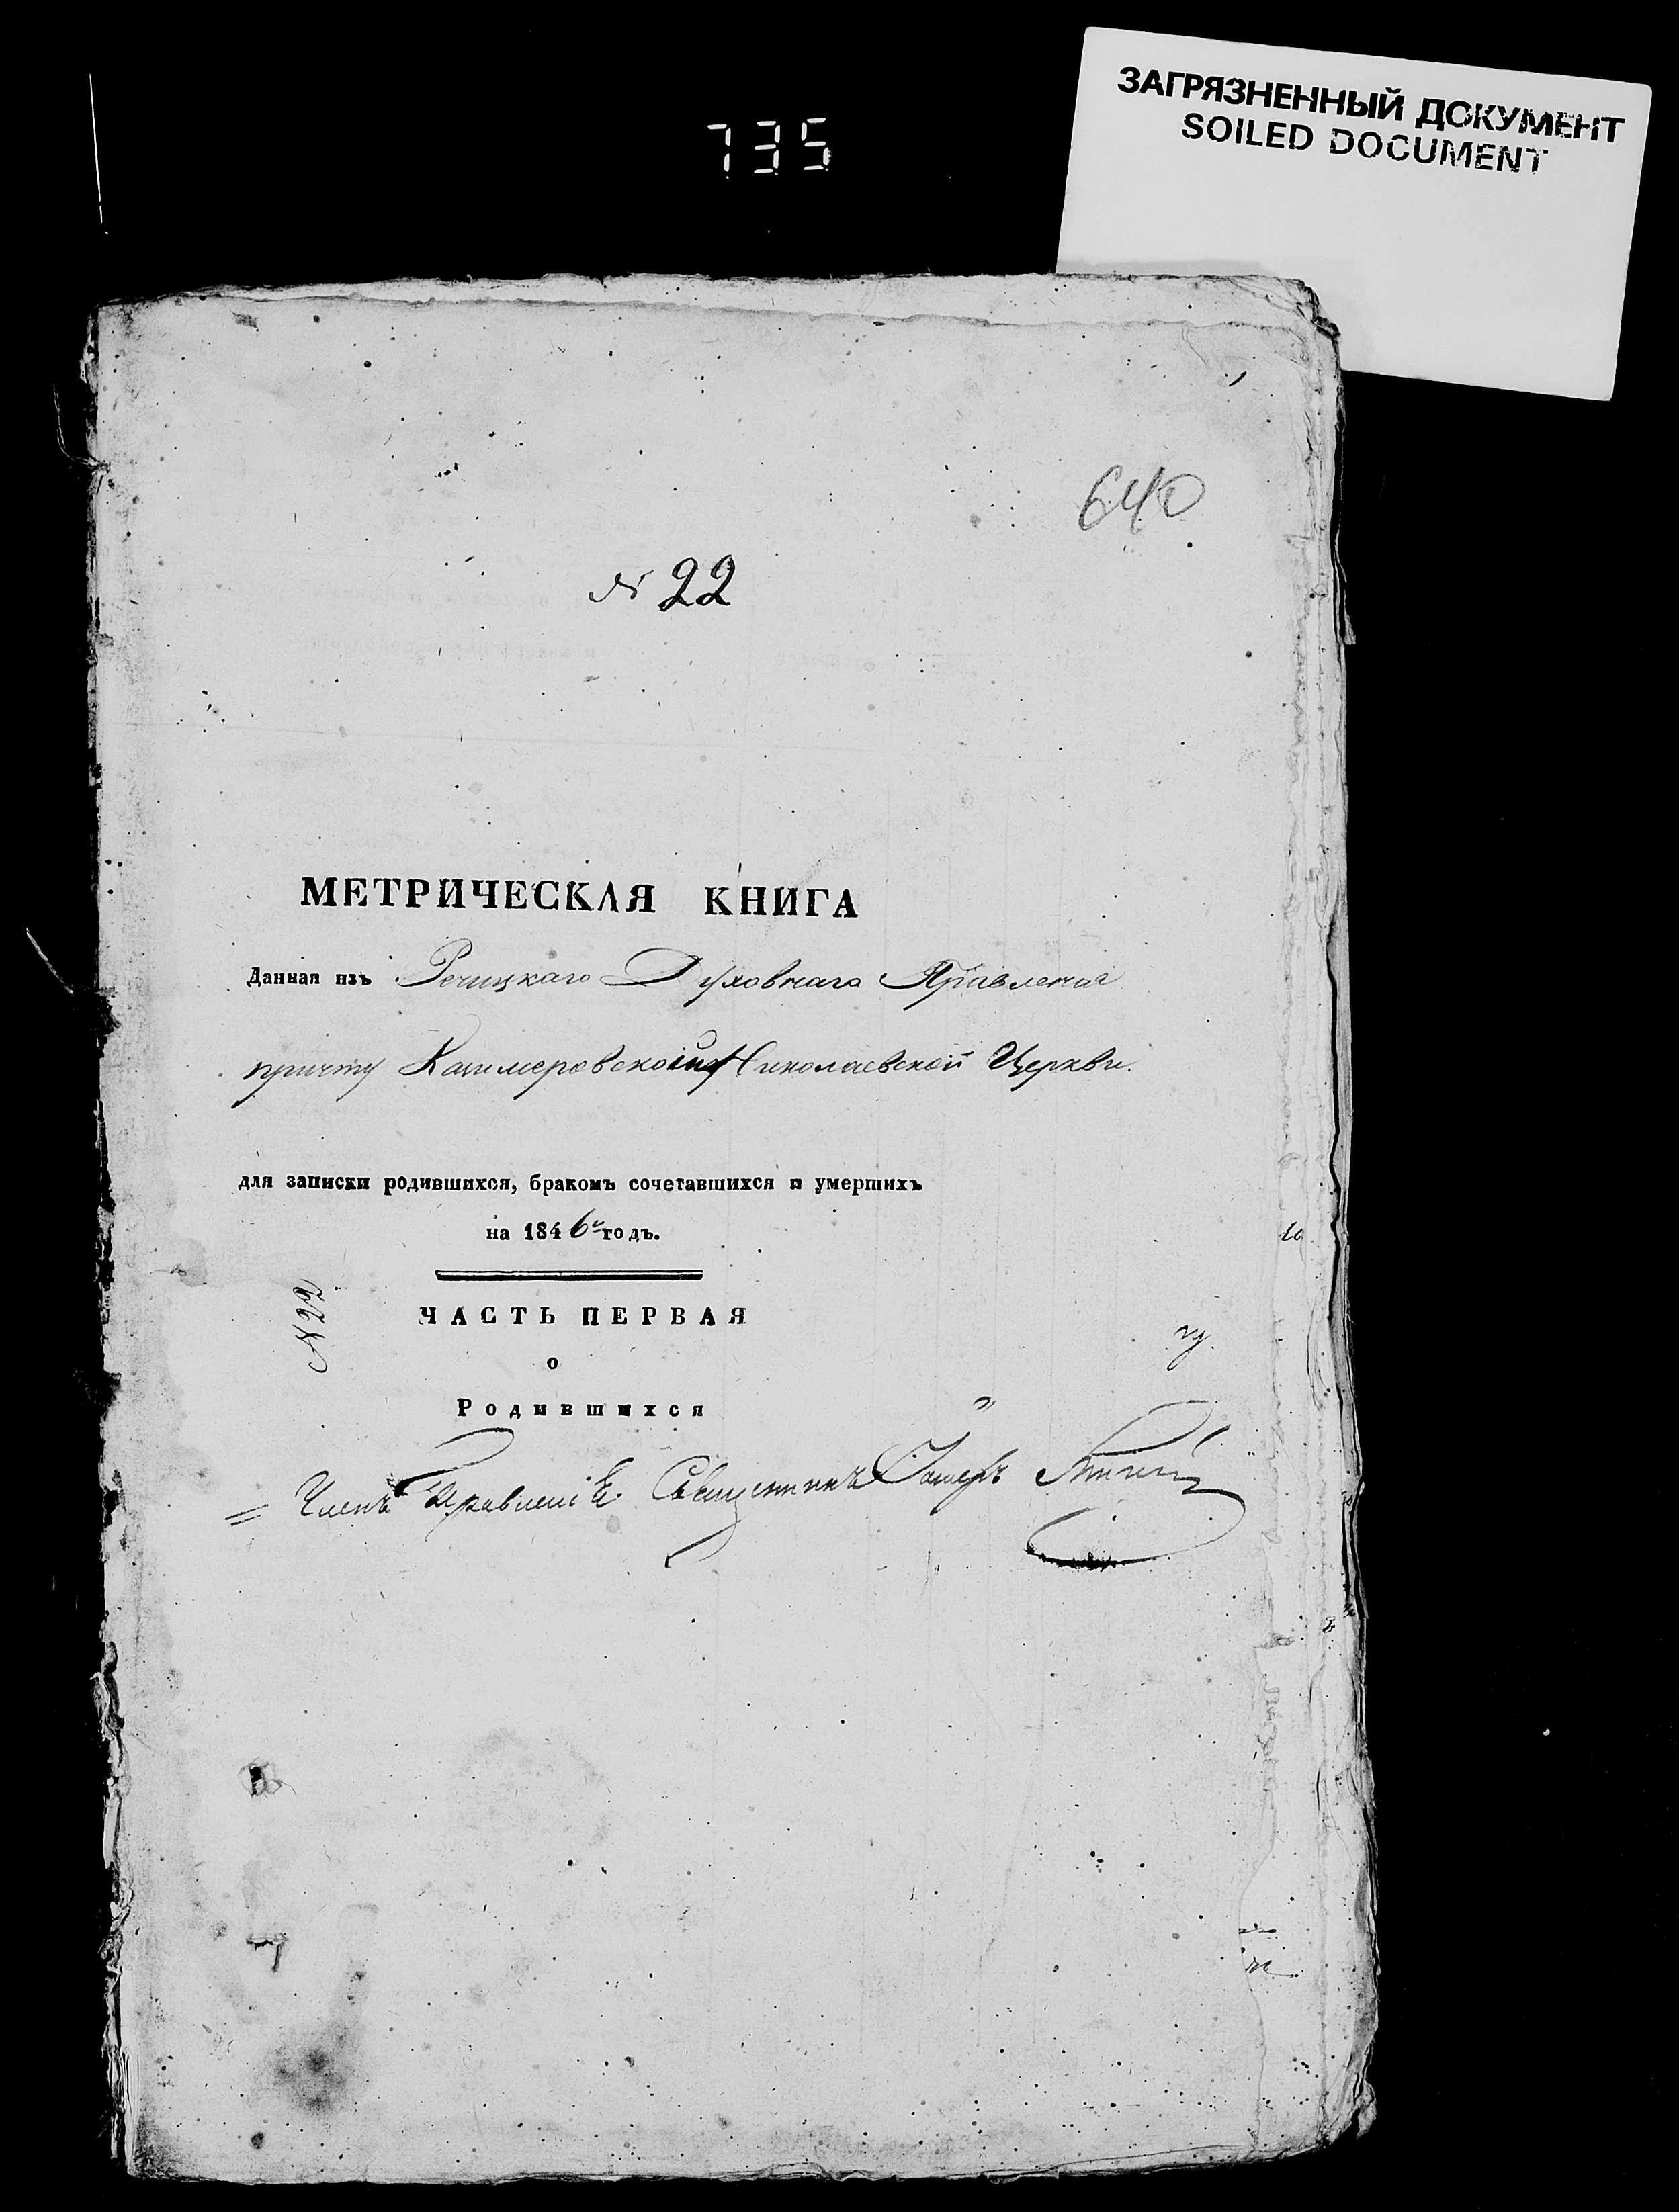 ЗАГРЯЗНЕННЫЙ ДОКУМЕНТ
SOILED DOCUMENT
735
640
№ 22
МЕТРИЧЕСКАЯ КНИГА
Данная изъ Речицкаго Духовнаго Правления
причту Николаевской Церкви.
для записки родившихся, бракомъ сочетавшихся и умершихъ
на 1846й годъ.
№ 22
ЧАСТЬ ПЕРВАЯ
о
Родившихся
Членъ Правленія Священникъ